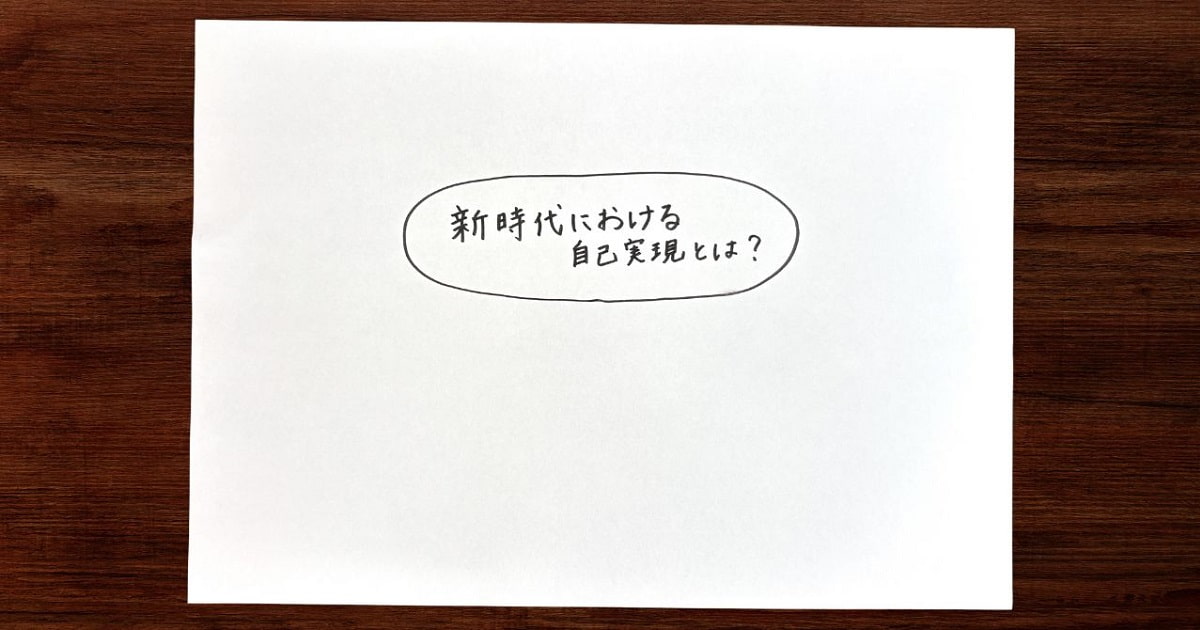 新時代における
自己実現とは?